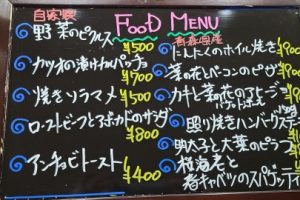 FOOD MENU
自家製
野菜のピクルス
¥500
カツオの漬けカルパッチョ
¥700
焼きソラマメ
¥500
ローストビーフとアボカドのサラダ
¥800
アンチョビトースト
¥400
青森県産
にんにくのホイル焼き
¥900
菜の花とベーコンのピザ
¥900
カキと菜の花のアヒージョ
バゲット
照り焼きハンバーグステーキ
明太子と大葉のピラフ
桜海老と
春キャベツのスパゲッティ